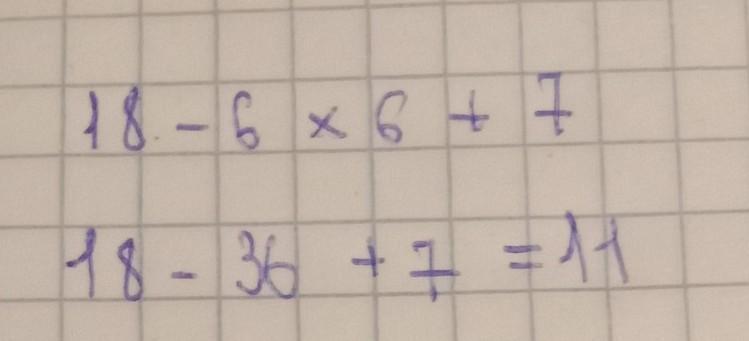 18 - 6 × 6 + 7
18 - 36 + 7 = 11